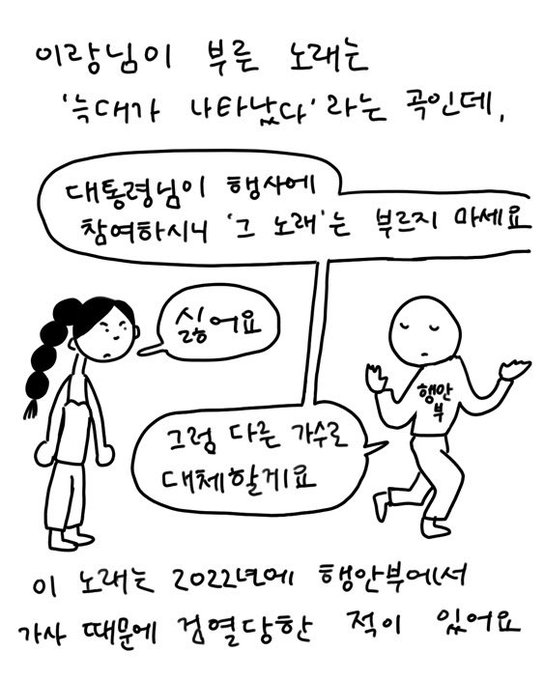 이랑님이 부른 노래는
'늑대가 나타났다'라는 곡인데,
대통령님이 행사에
참여하시니 '그 노래'는 부르지 마세요
싫어요
행안
부
그럼 다른 가수로
대체할게요
이 노래는 2022년에 행안부에서
가사 때문에 검열당한 적이 있어요